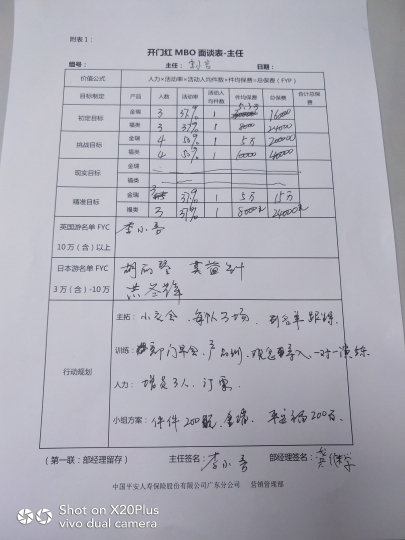 附表1：
开门红MBO面谈表-主任
组号： 主任： 日期：
价值公式 人力×活动率×活动人均件数×件均保费=总保费（FYP）
目标制定 产品 人数 活动率 活动人均件数 件均保费 总保费 合计总保费
初定目标 金瑞 3 37% 1 5.3万 160000
福类 3 37% 1 8000 24000
挑战目标 金瑞 4 50% 1 5万 200000
福类 4 50% 1 10000 40000
现实目标 金瑞
福类
精准目标 金瑞 3 37% 1 5万 15万
福类 3 37% 1 8000元 24000元
英国游名单FYC
10万（含）以上 李小容
日本游名单FYC
3万（含）-10万 胡丽琴
行动规划
主拓：小交会，每队3场，列名单跟踪.
训练：部门早会，产品训，一对一演练
人力：增员3人，订票
小组方案：件件200
（第一联：部经理留存） 主任签名： 李小容 部经理签名：
中国平安人寿保险股份有限公司广东分公司 营销管理部
Shot on X20Plus
vivo dual camera